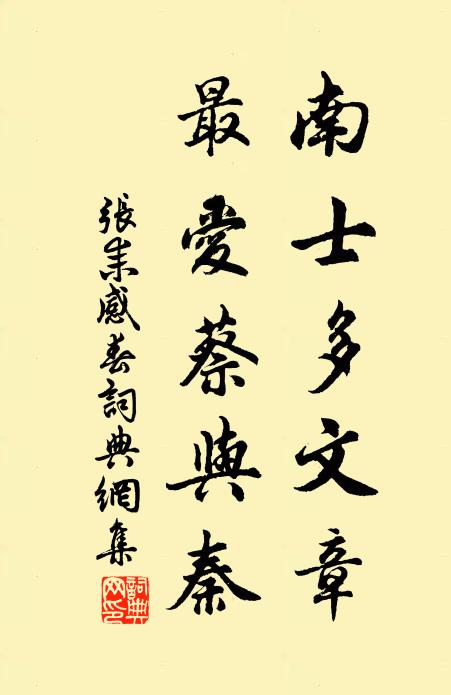 南士多文章
最愛蔡與秦
張耒感春詞典網集
詞典網印